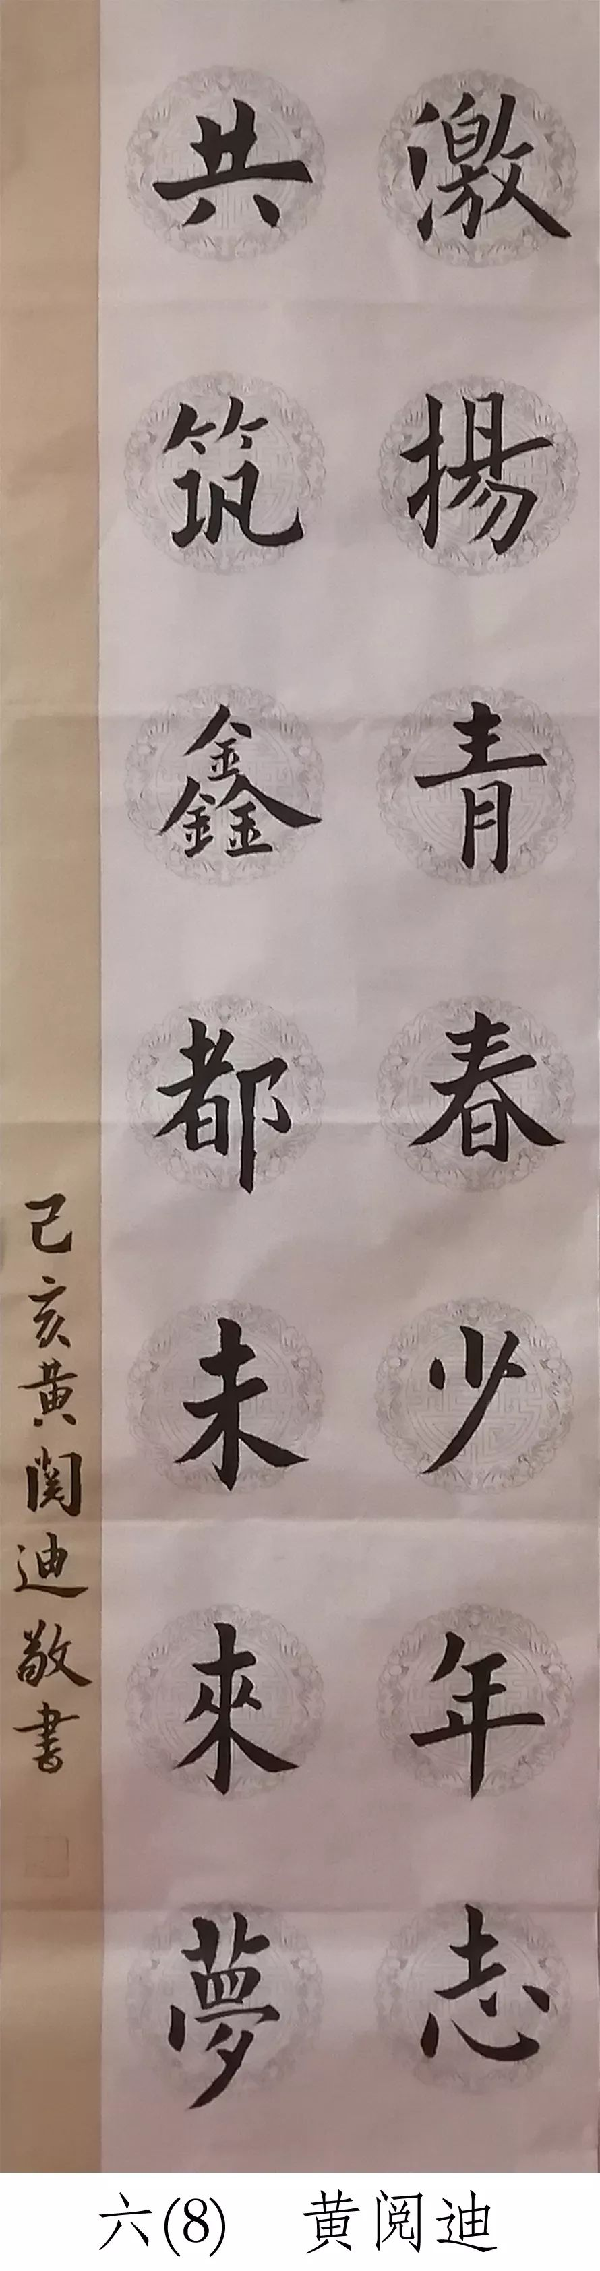 激揚青春少年志
共筑鑫都未來夢
己亥黄阅迪敬書
六(8) 黄阅迪